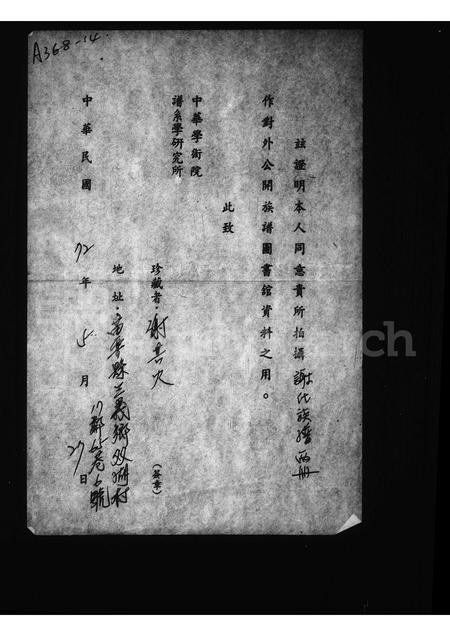 A368-14
茲證明本人同意貴所拍攝謝氏族譜兩冊
作對外公開族譜圖書館資料之用。
此致
中華學術院
譜系學研究所
珍藏者：謝（簽章）
地址：苗栗縣三義鄉双湖村
17鄰65巷6號
中華民國72年5月27日